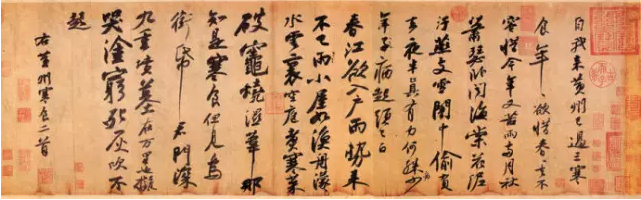 自我来黄州已過三寒
食年〻欲惜春春去不
容惜今年又苦雨兩月秋
蕭瑟卧聞海棠花泥
汙燕支雪闇中偷負
去夜半真有力何殊病少
年子病起須已白
春江欲入戶雨勢来
不已雨小屋如漁舟濛〻
水雲裏空庖煮寒菜
破竈燒濕葦那
知是寒食但見烏
銜帋君門深
九重墳墓在万里也擬
哭塗窮死灰吹不
起
右黄州寒食二首